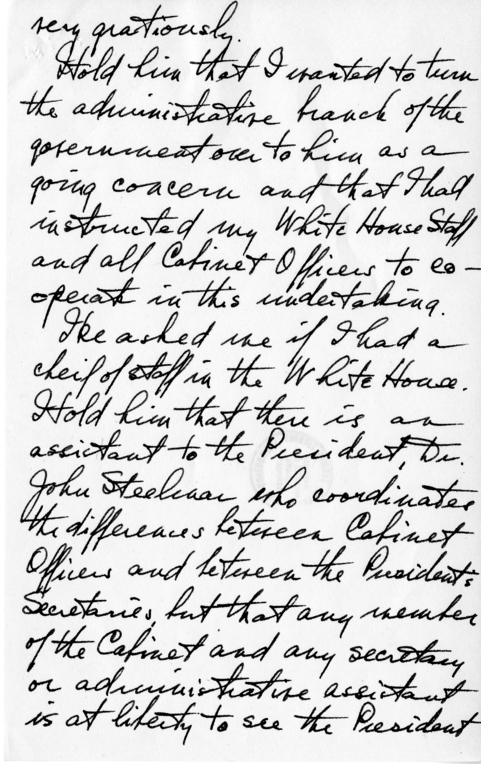 very gratiously.
I told him that I wanted to turn
the administrative branch of the
government over to him as a
going concern and that I had
instructed my White House Staff
and all Cabinet Officers to co-
operate in this undertaking.
Ike asked me if I had a
cheif of staff in the White House.
I told him that there is an
assistant to the President, Dr.
John Steelman who coordinates
the differences between Cabinet
Officers and between the President's
Secretaries, but that any member
of the Cabinet and any secretary
or administrative assistant
is at liberty to see the President